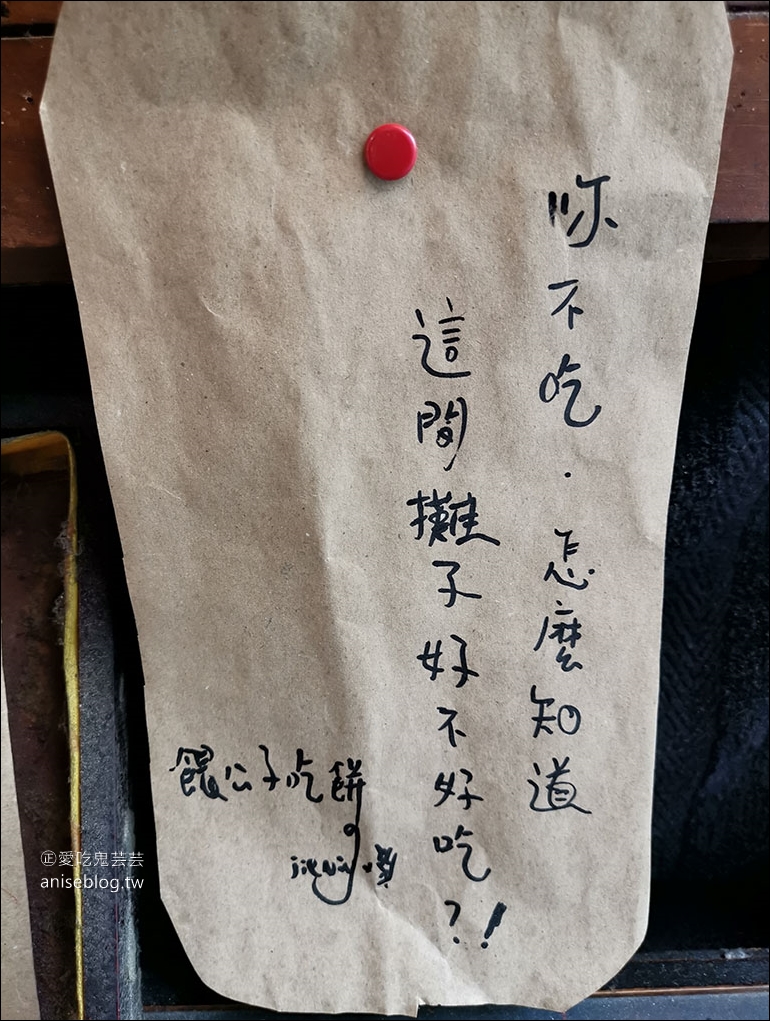 你不吃．怎麼知道
這間攤子好不好吃?!
餵公子吃餅
㊣愛吃鬼芸芸
aniseblog.tw